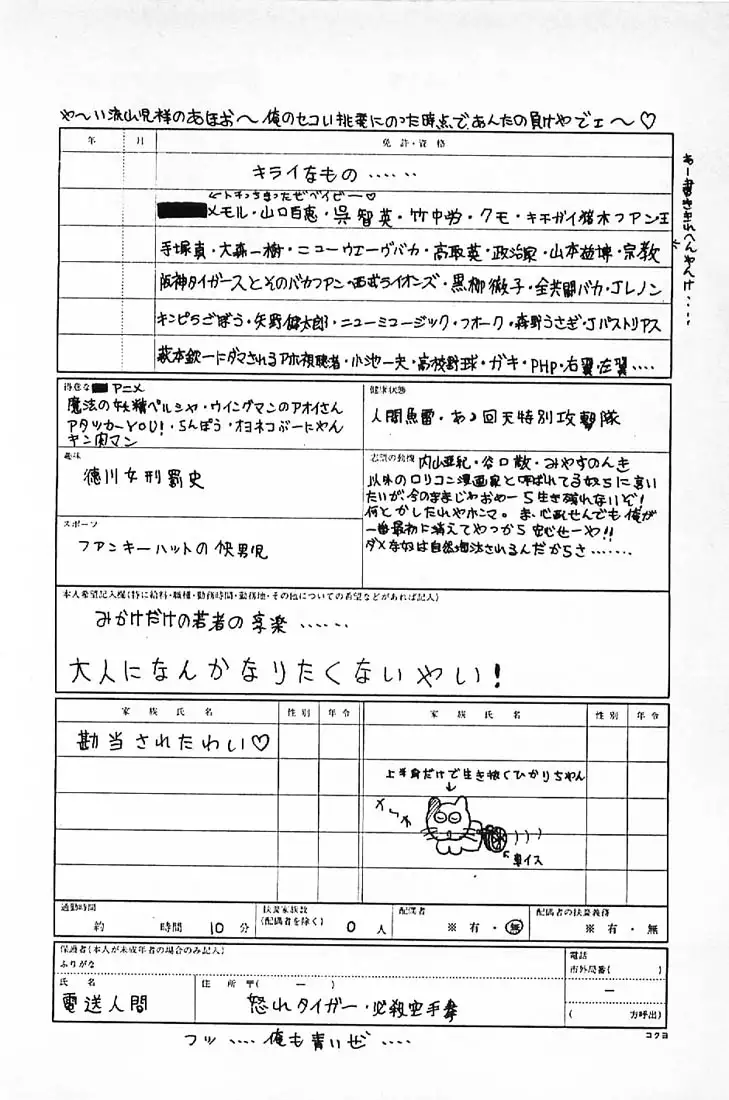 や〜い流山児様のあほお〜俺のセコい挑発にのった時点であんたの負けやでェ〜♡
年 月 免許・資格
キライなもの……
←トチっちまったぜベイビー♡
メモル・山口百恵・呉智英・竹中労・クモ・キチガイ猪木ファン王
手塚真・大森一樹・ニューウェーヴバカ・高取英・政治家・山本益博・宗教
阪神タイガースとそのバカファン・西武ライオンズ・黒柳徹子・全共闘バカ・Jレノン
キンピラごぼう・矢野健太郎・ニューミュージック・フォーク・森野うさぎ・Jパストリアス
萩本欽一にダマされるアホ視聴者・小池一夫・高校野球・ガキ・PHP・右翼・左翼….
あー書ききれへんやんけ….
得意な アニメ
魔法の妖精ペルシャ・ウイングマンのアオイさん
アタッカーYOU!・らんぽう・オヨネコぶーにゃん
キン肉マン
健康状態
人間魚雷・あゝ回天特別攻撃隊
趣味
徳川女刑罰史
志望の動機 内山亜紀・谷口敬・みやすのんき
以外のロリコン漫画家と呼ばれてる奴らに言い
たいが今のままじゃおめーら生き残れないぞ!
何とかしたれやホンマ。ま、心配せんでも俺が
一番最初に消えてやっから安心せーや!!
ダメな奴は自然淘汰されるんだからさ…….
スポーツ
ファンキーハットの快男児
本人希望記入欄(特に給料・職種・勤務時間・勤務地・その他についての希望などがあれば記入)
みかけだけの若者の享楽……
大人になんかなりたくないやい!
家族氏名 性別 年令 家族氏名 性別 年令
勘当されたわい♡
上半身だけで生き抜くひかりちゃん
↓
↖車イス
通勤時間
約 時間 10 分
扶養家族数
(配偶者を除く) 0 人
配偶者
※ 有・無
配偶者の扶養義務
※ 有・無
保護者(本人が未成年者の場合のみ記入)
ふりがな
氏 名
電送人間
住 所 〒( ー )
怒れタイガー・必殺空手拳
電話
市外局番( )
ー
( 方呼出)
フッ….俺も青いぜ….
コクヨ